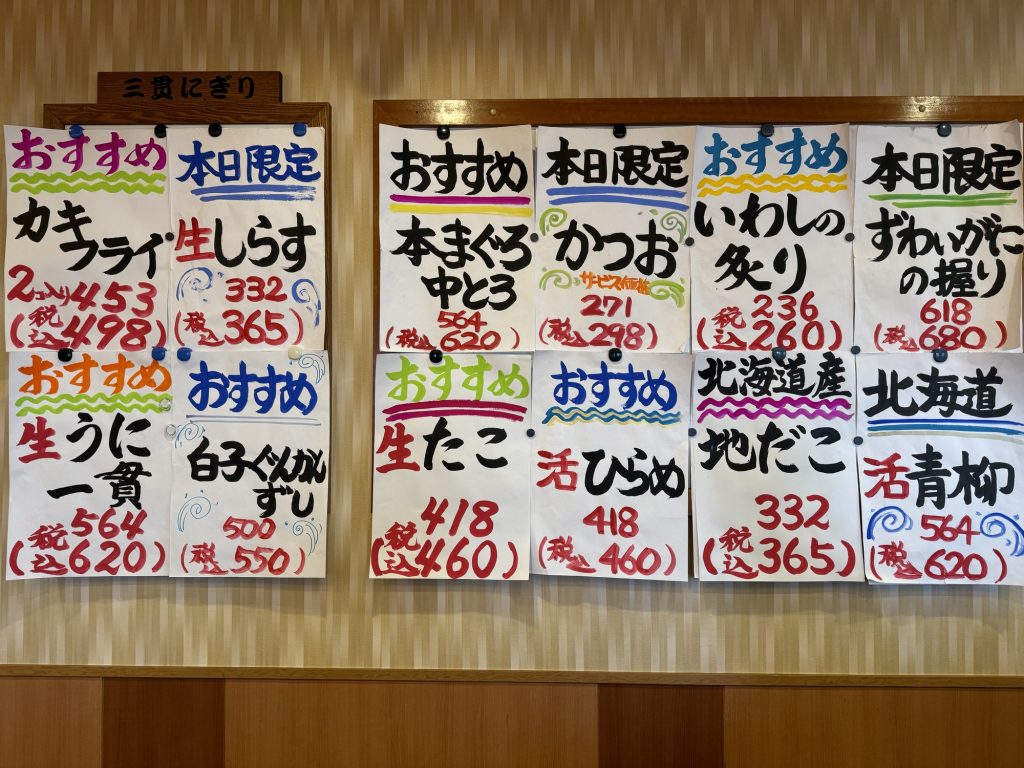 三貫にぎり
おすすめ
カキ
フライ
2コ入り 453
(税込498)
本日限定
生しらす
332
(税込365)
おすすめ
本まぐろ
中とろ
564
(税込620)
本日限定
かつお
サービス価格
271
(税込298)
おすすめ
いわしの
炙り
236
(税込260)
本日限定
ずわいがに
の握り
618
(税込680)
おすすめ
生うに
一貫
564
(税込620)
おすすめ
白子ぐんかん
ずし
500
(税込550)
おすすめ
生たこ
418
(税込460)
おすすめ
活ひらめ
418
(税込460)
北海道産
地だこ
332
(税込365)
北海道
活青柳
564
(税込620)